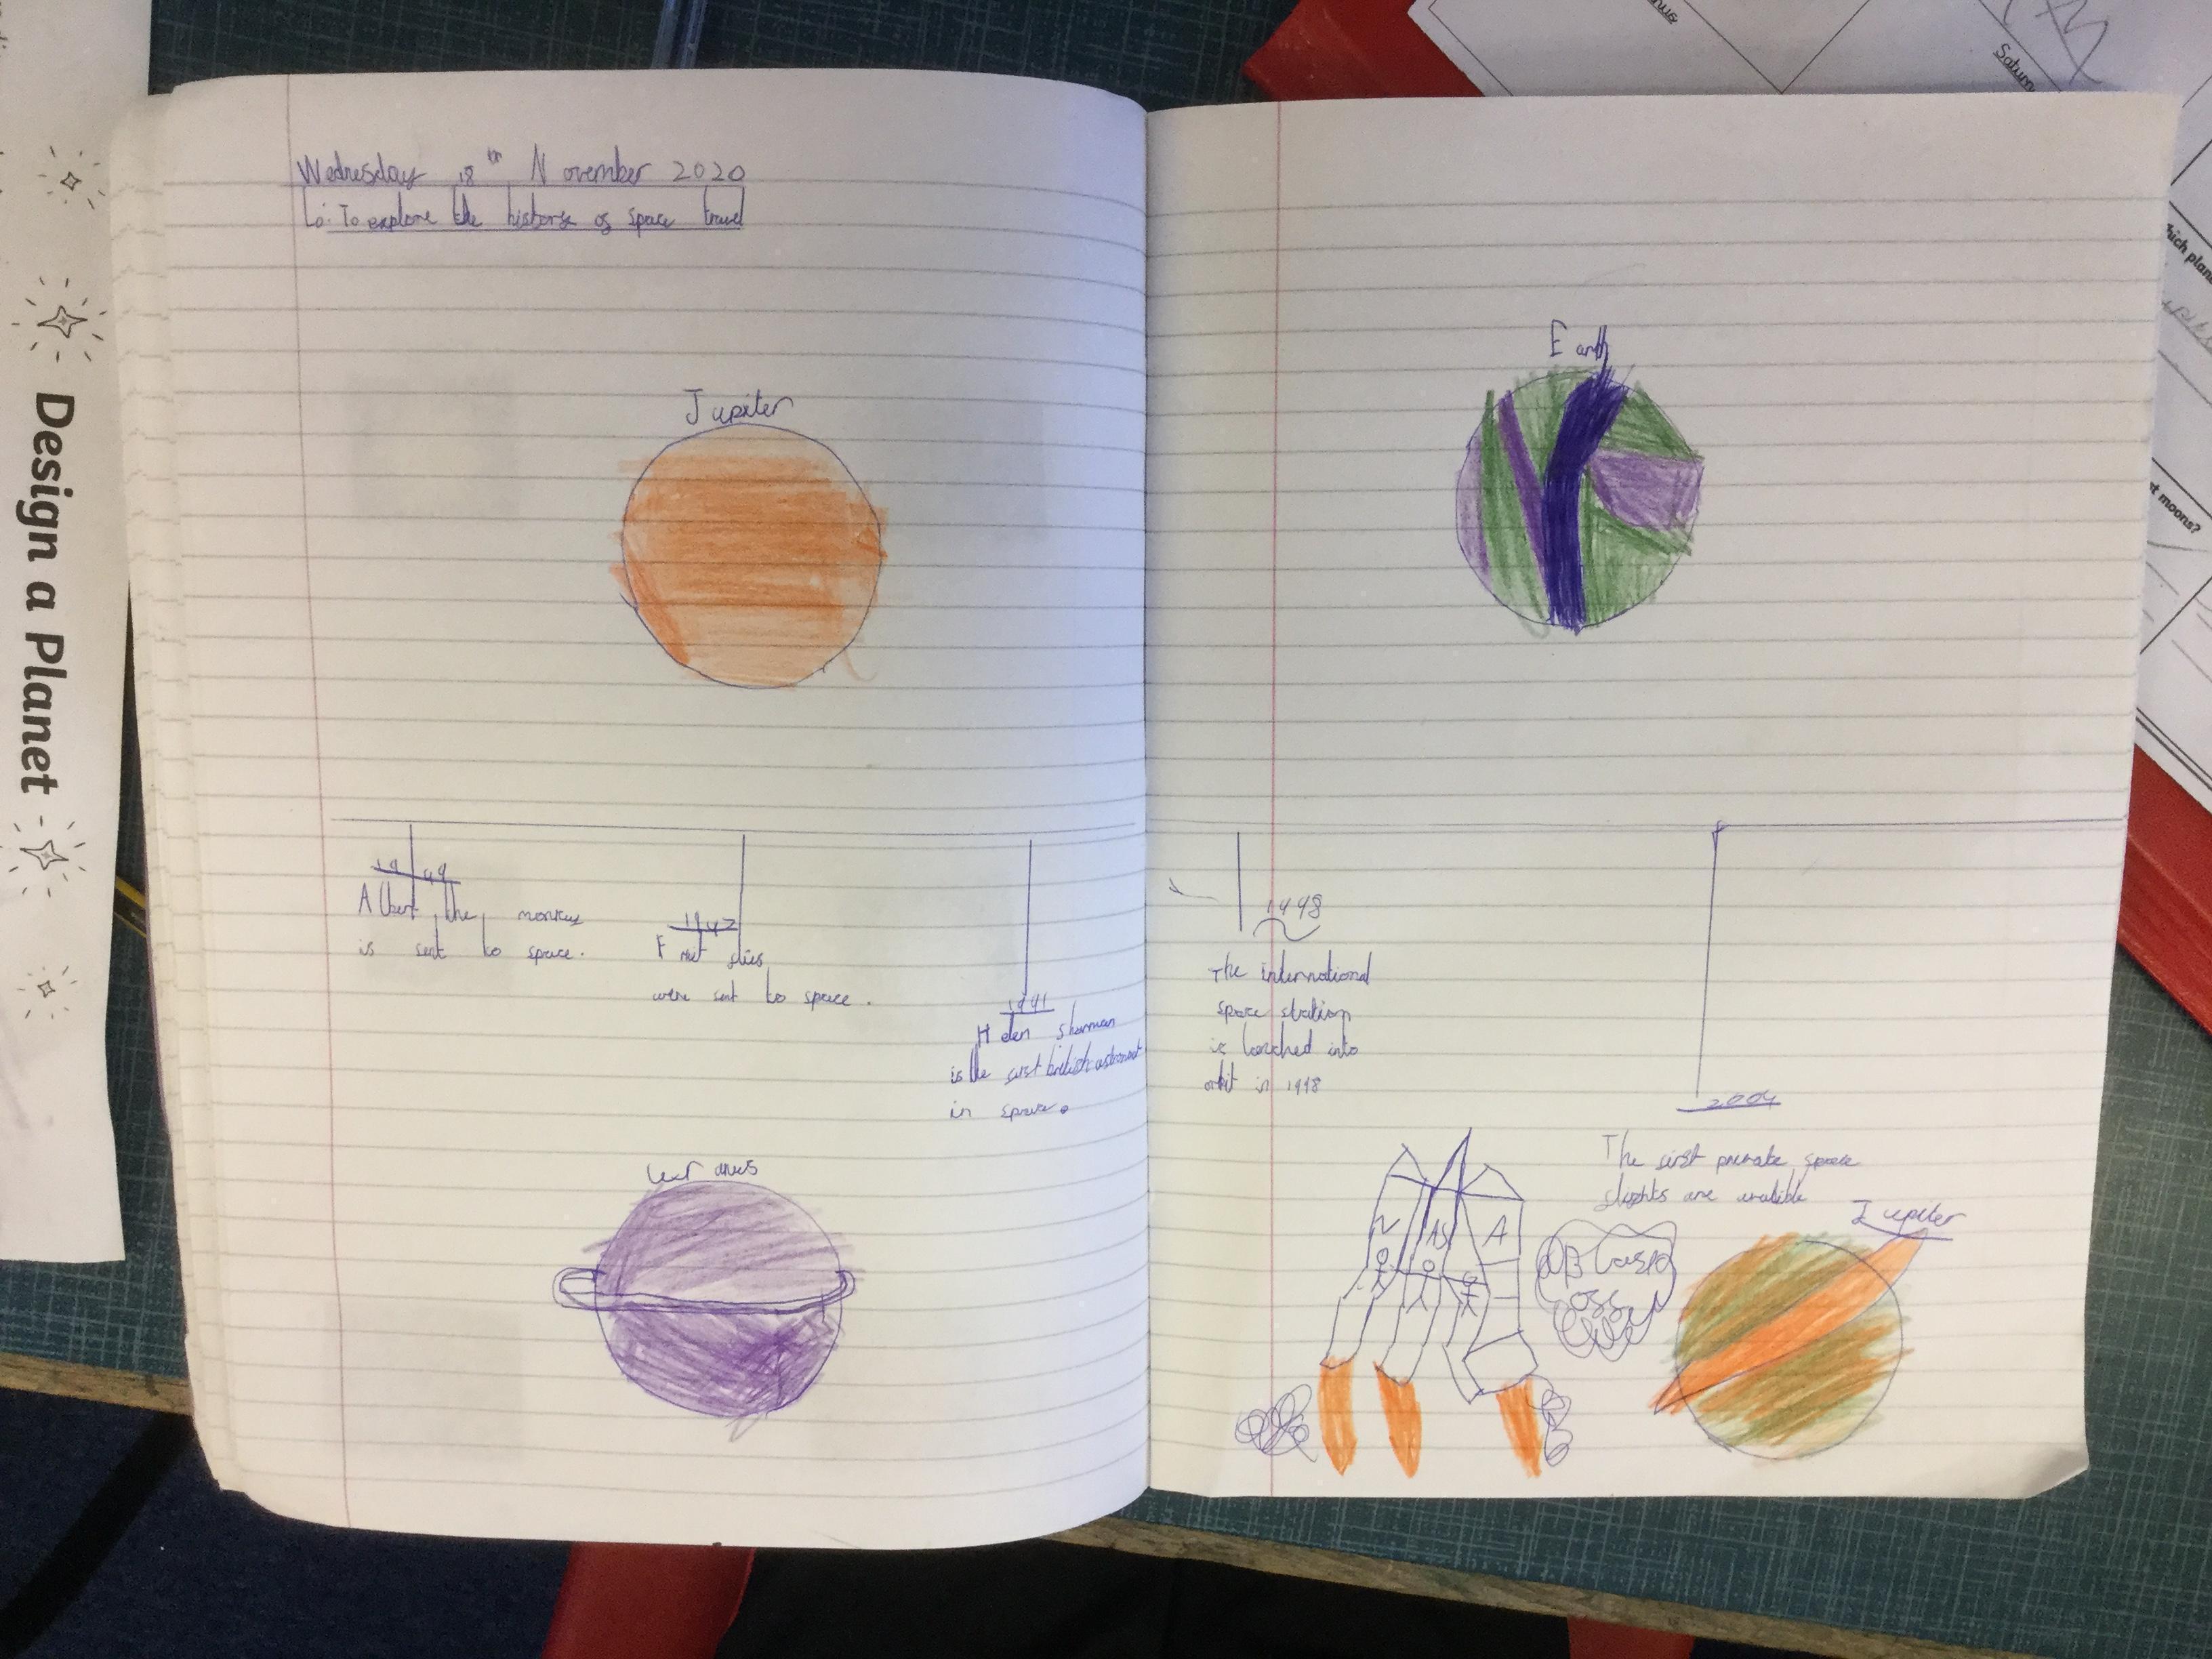 Wednesday 18th November 2020
Lo: To explore the history of space travel
Jupiter
1949
Albert the monkey
is sent to space.
1947
Fruit flies
were sent to space.
1991
Helen sharman
is the first british astronaut
in space.
Earth
1998
The international
space station
is lanched into
orbit in 1998
2004
The first private space
flights are
Jupiter
N AS A
Design a Planet
Saturn
hich plan
t moons?